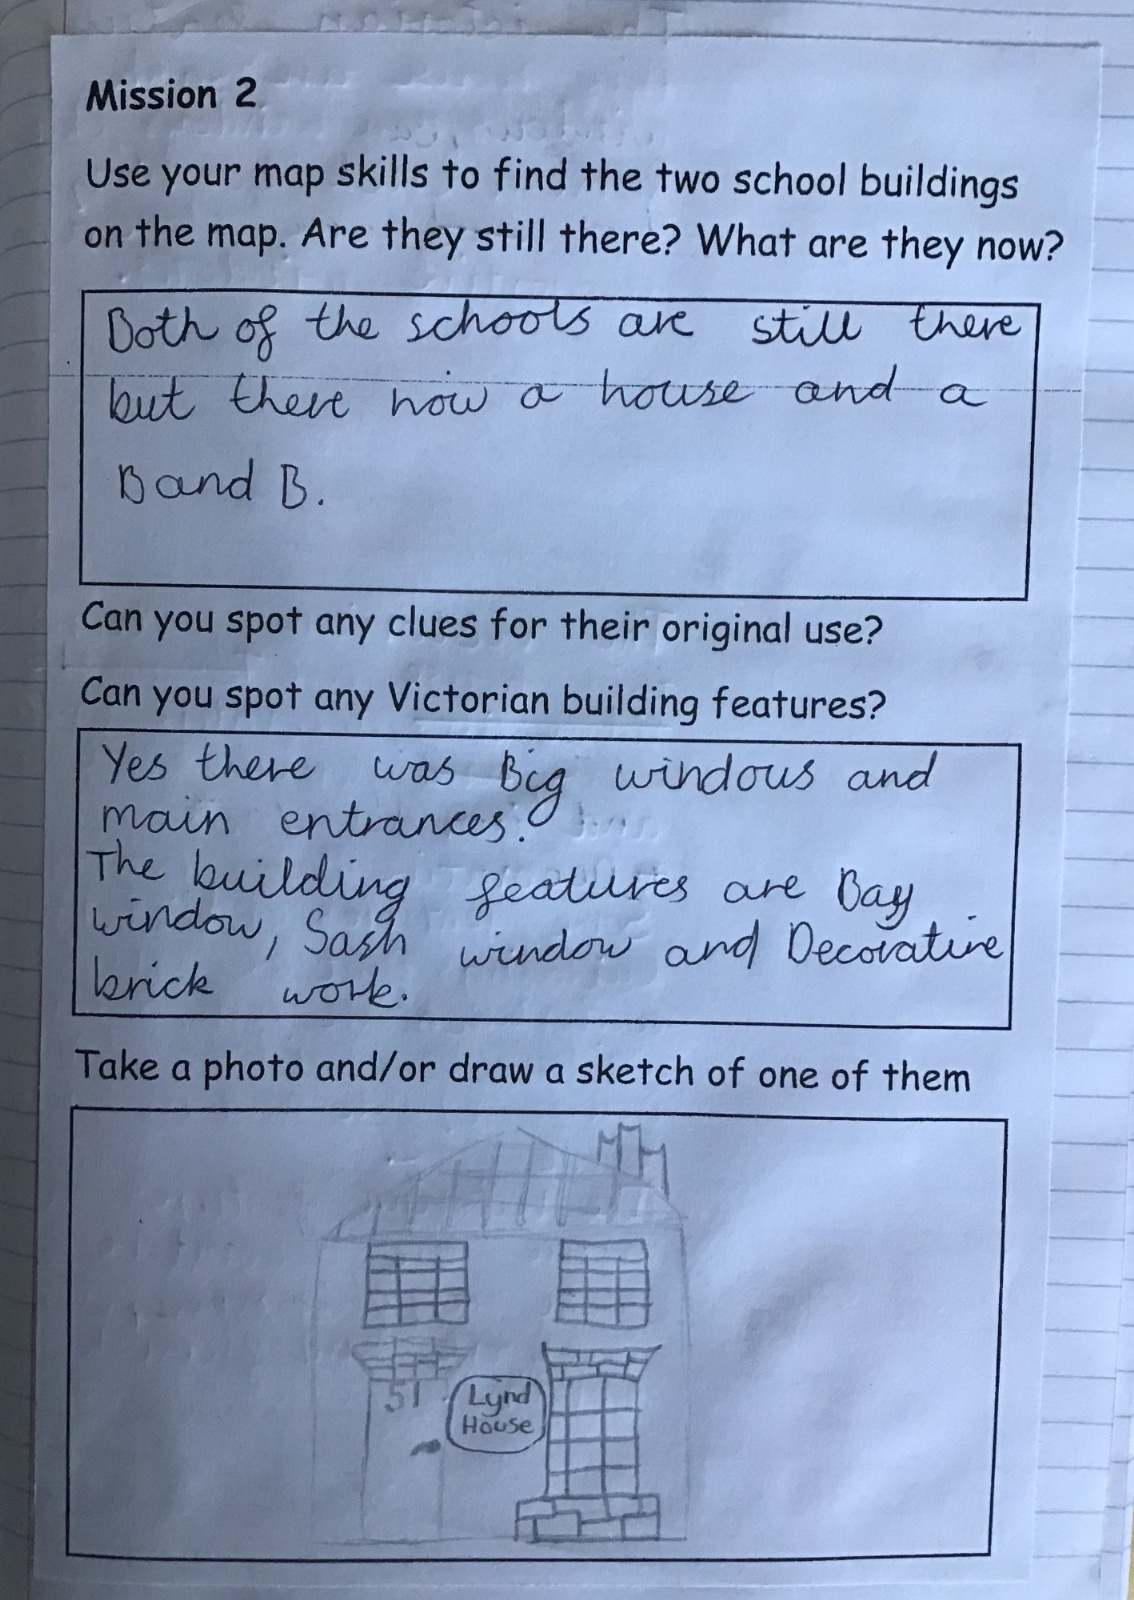 Mission 2
Use your map skills to find the two school buildings
on the map. Are they still there? What are they now?
Both of the schools are still there
but there now a house and a
B and B.
Can you spot any clues for their original use?
Can you spot any Victorian building features?
Yes there was Big windous and
main entrances.
The building features are Bay
window, Sash window and Decorative
brick work.
Take a photo and/or draw a sketch of one of them
51
Lynd
House